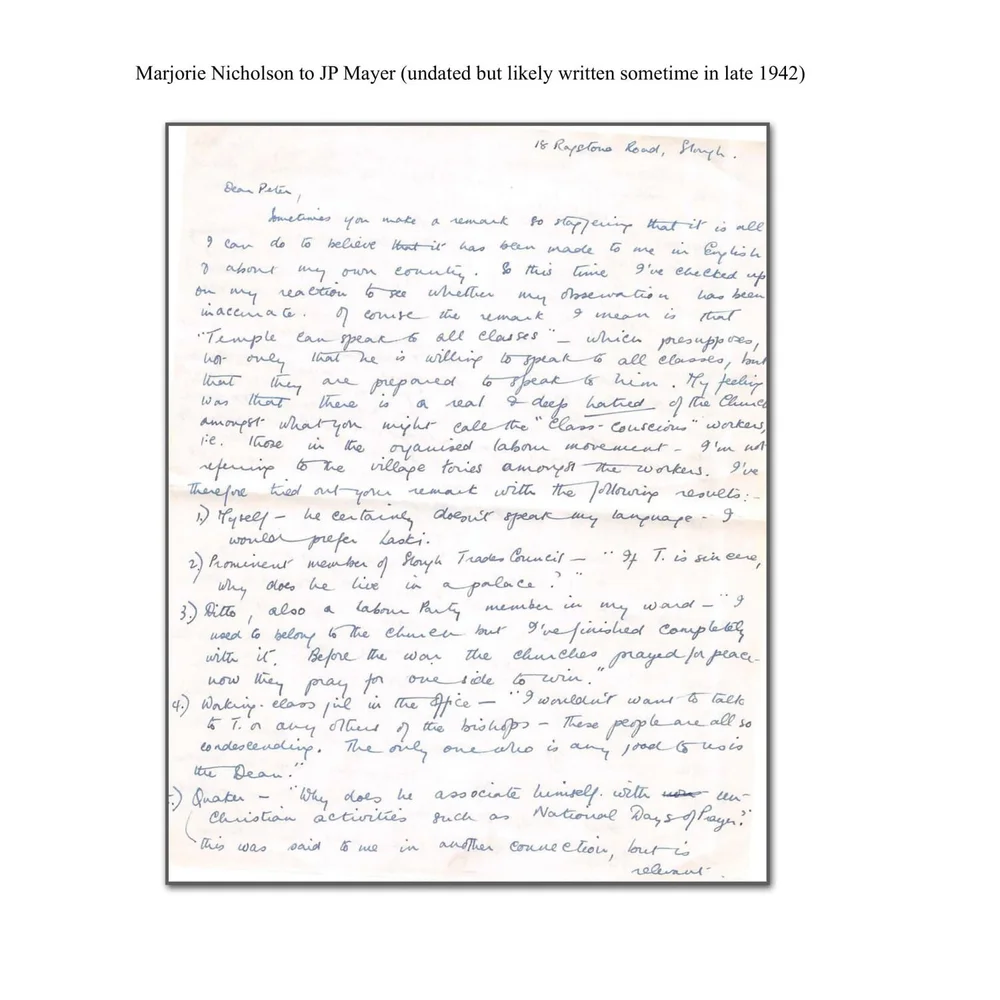 Marjorie Nicholson to JP Mayer (undated but likely written sometime in late 1942)
18 Raystone Road, Slough.
Dear Peter,
Sometimes you make a remark so staggering that it is all
I can do to believe that it has been made to me in English
& about my own country. So this time I've checked up
on my reaction to see whether my observation has been
inaccurate. Of course the remark I mean is that
"Temple can speak to all classes" — which presupposes,
not only that he is willing to speak to all classes, but
that they are prepared to speak to him. My feeling
was that there is a real & deep hatred of the Church
amongst what you might call the "class-conscious" workers,
i.e. those in the organised labour movement - I'm not
referring to the village Tories amongst the workers. I've
therefore tried out your remark with the following results:-
1.) Myself — he certainly doesn't speak my language - I
would prefer Laski.
2.) Prominent member of Slough Trades Council — "If T. is sincere,
why does he live in a palace?"
3.) Ditto, also a Labour Party member in my ward — "I
used to belong to the church but I've finished completely
with it. Before the war the churches prayed for peace -
now they pray for one side to win."
4.) Working-class girl in the office — "I wouldn't want to talk
to T. or any others of the bishops — these people are all so
condescending. The only one who is any good to us is
the Dean."
.) Quaker — "Why does he associate himself with un-
Christian activities such as National Days of Prayer?"
this was said to me in another connection, but is
relevant.